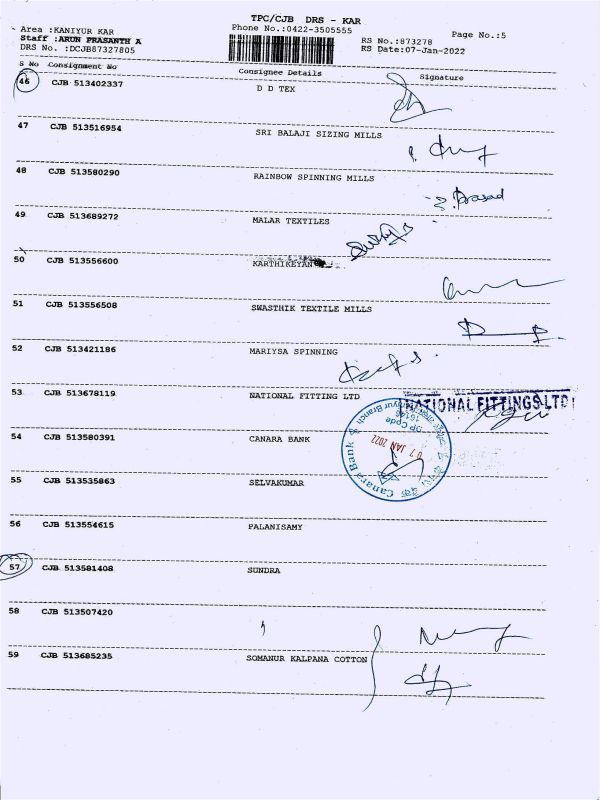 TPC/CJB DRS - KAR
Area :KANIYUR KAR
Phone No.:0422-3505555
Page No.:5
Staff :ARUN PRASANTH A
RS No.:873278
DRS No. :DCJB87327805
RS Date:07-Jan-2022
S No Consignment No Consignee Details Signature
46 CJB 513402337 D D TEX
47 CJB 513516954 SRI BALAJI SIZING MILLS
48 CJB 513580290 RAINBOW SPINNING MILLS
S. Prasad
49 CJB 513689272 MALAR TEXTILES
50 CJB 513556600 KARTHIKEYAN
51 CJB 513556508 SWASTHIK TEXTILE MILLS
52 CJB 513421186 MARIYSA SPINNING
53 CJB 513678119 NATIONAL FITTING LTD
NATIONAL FITTINGS LTD
54 CJB 513580391 CANARA BANK
Canara Bank
Kaniyur Branch
DP Code
07 JAN 2022
55 CJB 513535863 SELVAKUMAR
56 CJB 513554615 PALANISAMY
57 CJB 513581408 SUNDRA
58 CJB 513507420
59 CJB 513685235 SOMANUR KALPANA COTTON